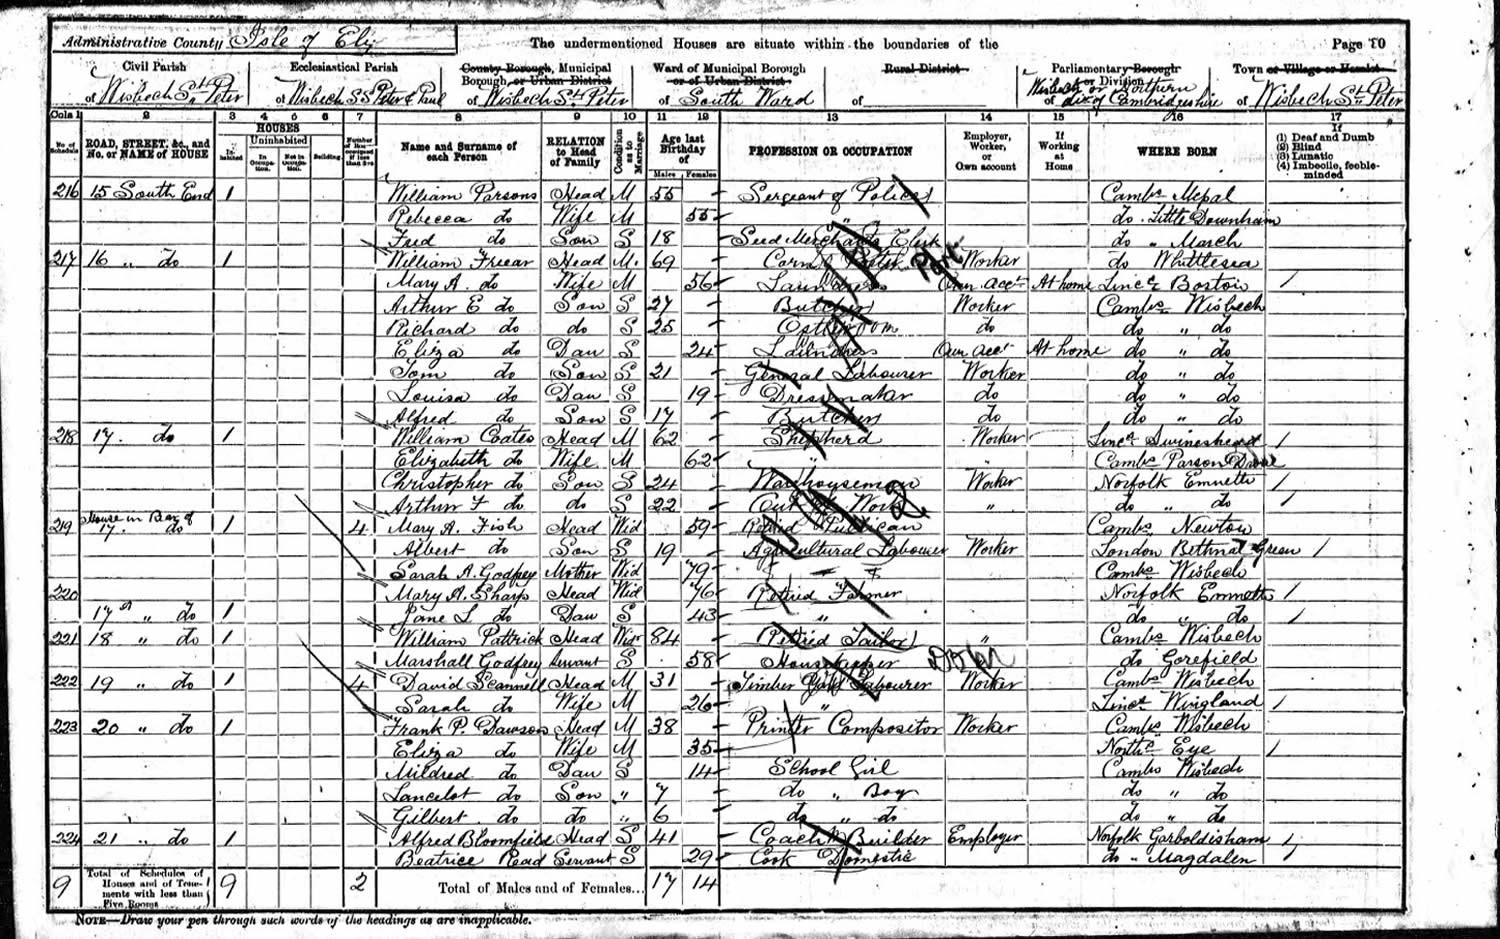 Administrative County Isle of Ely
The undermentioned Houses are situate within the boundaries of the
Page 10
Civil Parish of Wisbech St Peter
Ecclesiastical Parish of Wisbech SS Peter & Paul
County Borough, Municipal Borough, or Urban District of Wisbech St Peter
Ward of Municipal Borough or of Urban District of South Ward
Rural District of
Parliamentary Borough or Division of Wisbech or Northern div. of Cambridgeshire
Town or Village or Hamlet of Wisbech St Peter
Cols 1 2 3 4 5 6 7 8 9 10 11 12 13 14 15 16 17
No. of Schedule
ROAD, STREET, &c., and No. or NAME of HOUSE
HOUSES
Inhabited
Uninhabited
In Occupation.
Not in Occupation.
Building.
Number of Rooms occupied if less than five
Name and Surname of each Person
RELATION to Head of Family
Condition as to Marriage
Age last Birthday of
Males Females
PROFESSION OR OCCUPATION
Employer, Worker, or Own account
If Working at Home
WHERE BORN
If
(1) Deaf and Dumb
(2) Blind
(3) Lunatic
(4) Imbecile, feeble-minded
216 15 South End 1 William Parsons Head M 55 Sergeant of Police Cambs Mepal
Rebecca do Wife M 55 " do . Little Downham
Fred do Son S 18 Seed Merchants Clerk do " March
217 16 " do 1 William Frear Head M. 69 Corn Porter Worker do Whittlesea
Mary A. do Wife M 56 Laundress Own acct At home Lincs Boston
Arthur E do Son S 27 Butcher Worker Cambs Wisbech
Richard do do S 25 do do " do
Eliza do Dau S 24 Laundress Own acct At home do " do
Tom do Son S 21 General Labourer Worker do " do
Louisa do Dau S 19 Dressmaker do do " do
Alfred do Son S 17 Butcher do do " do
218 17. do 1 William Coates Head M 62 Shepherd Worker Lincs Swineshead
Elizabeth do Wife M 62 " Cambs Parson Drove
Christopher do Son S 24 Warehouseman Worker Norfolk Emneth
Arthur F do do S 22 Out of Work " do " do
219 House in Bay of 17 do 1 4 Mary A. Fish Head Wid 59 Retired Publican Cambs Newton
Albert do Son S 19 Agricultural Labourer Worker London Bethnal Green
Sarah A. Godfrey Mother Wid 79 Cambs Wisbech
220 Mary A. Sharp Head Wid 76 Retired Farmer Norfolk Emneth
17A " do 1 Jane L do Dau S 43 " do " do
221 18 " do 1 William Pattrick Head Widr 84 Retired Tailor " Cambs Wisbech
Marshall Godfrey Servant S 58 Housekeeper do Gorefield
222 19 " do 1 4 David Scannell Head M 31 Timber Yard Labourer Worker Cambs Wisbech
Sarah do Wife M 26 " Lincs Wingland
223 20 " do 1 Frank P. Dawson Head M 38 Printer Compositor Worker Cambs Wisbech
Eliza do Wife M 35 Northts Eye
Mildred do Dau S 14 School Girl Cambs Wisbech
Lancelot do Son " 7 do " Boy do " do
Gilbert do do " 6 do " do do " do
224 21 " do 1 Alfred Bloomfield Head S 41 Coach Builder Employer Norfolk Garboldisham
Beatrice Read Servant S 29 Cook Domestic do " Magdalen
9 Total of Schedules of Houses and of Tenements with less than Five Rooms 9 2 Total of Males and of Females... 17 14
NOTE—Draw your pen through such words of the headings as are inapplicable.